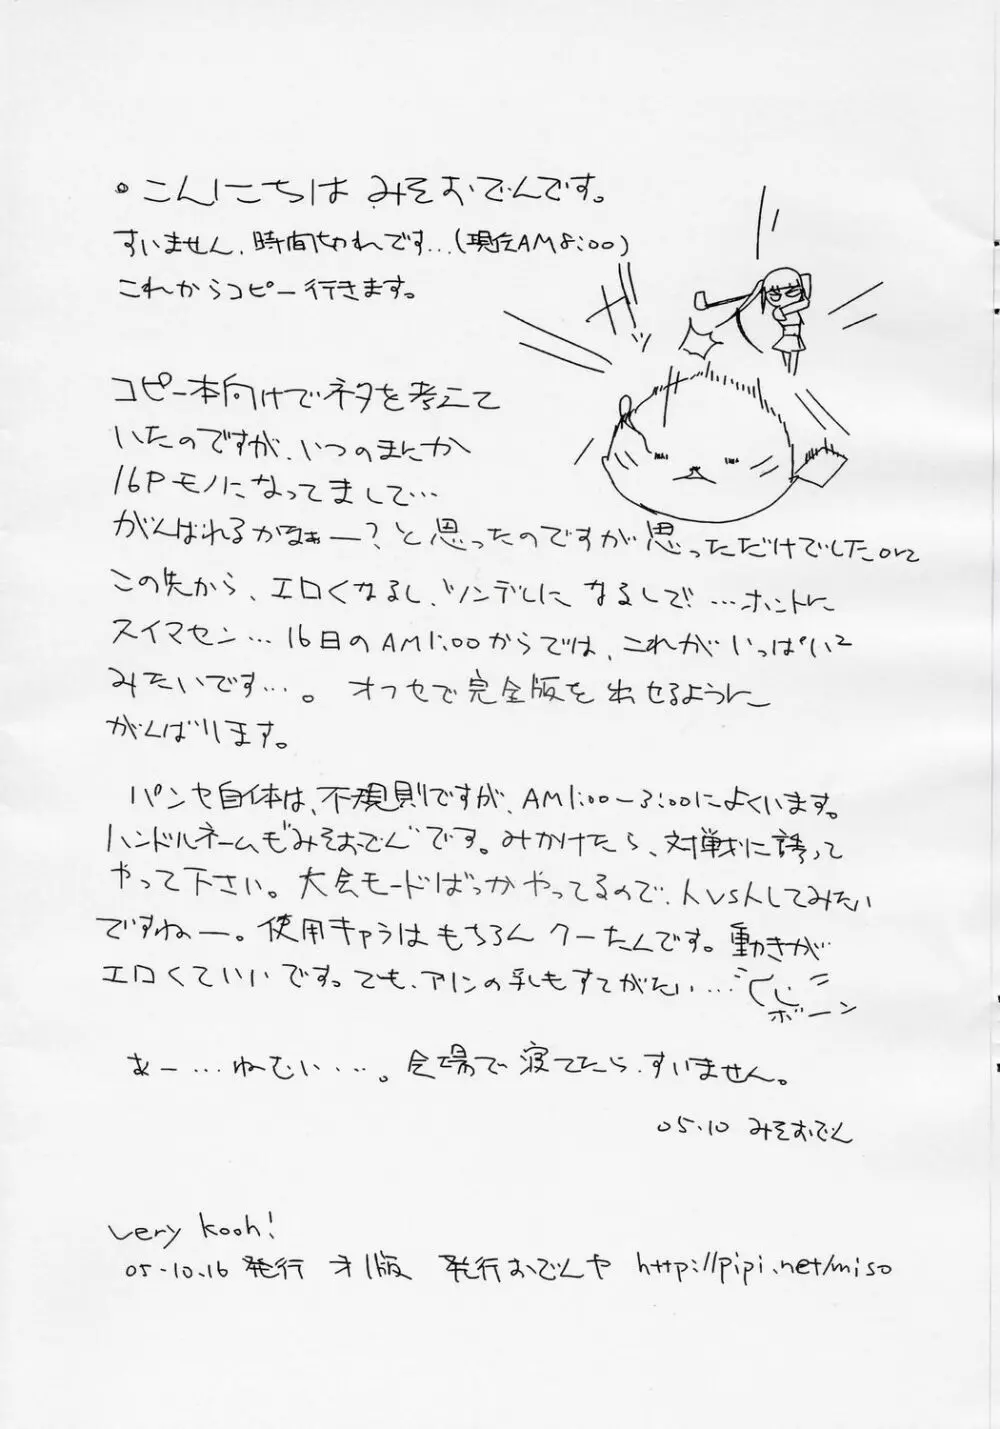 。こんにちは みそおでんです。
すいません、時間切れです…(現在AM8:00)
これからコピー行きます。
コピー本向けでネタを考えて
いたのですが、いつのまにか
16Pモノになってまして…
がんばれるかなぁー?と思ったのですが思っただけでしたorz
この先から、エロくなるし、ツンデレになるしで!…ホントに
スイマセン…16日のAM1:00からでは、これがいっぱい²
みたいです…。オフセで完全版を出せるように
がんばります。
パンヤ自体は、不規則ですが、AM1:00〜3:00によくいます。
ハンドルネームも"みそおでん"です。みかけたら、対戦に誘って
やって下さい。大会モードばっかやってるので、人vs人してみたい
ですねー。使用キャラはもちろんクーたんです。動きが
エロくていいです。でも、アリンの乳もすてがたい…
ボーン
あー…ねむい…。会場で寝てたらすいません。
05.10 みそおでん
Very kooh!
05.10.16発行 オ1版 発行おでんや http://pipi.net/miso